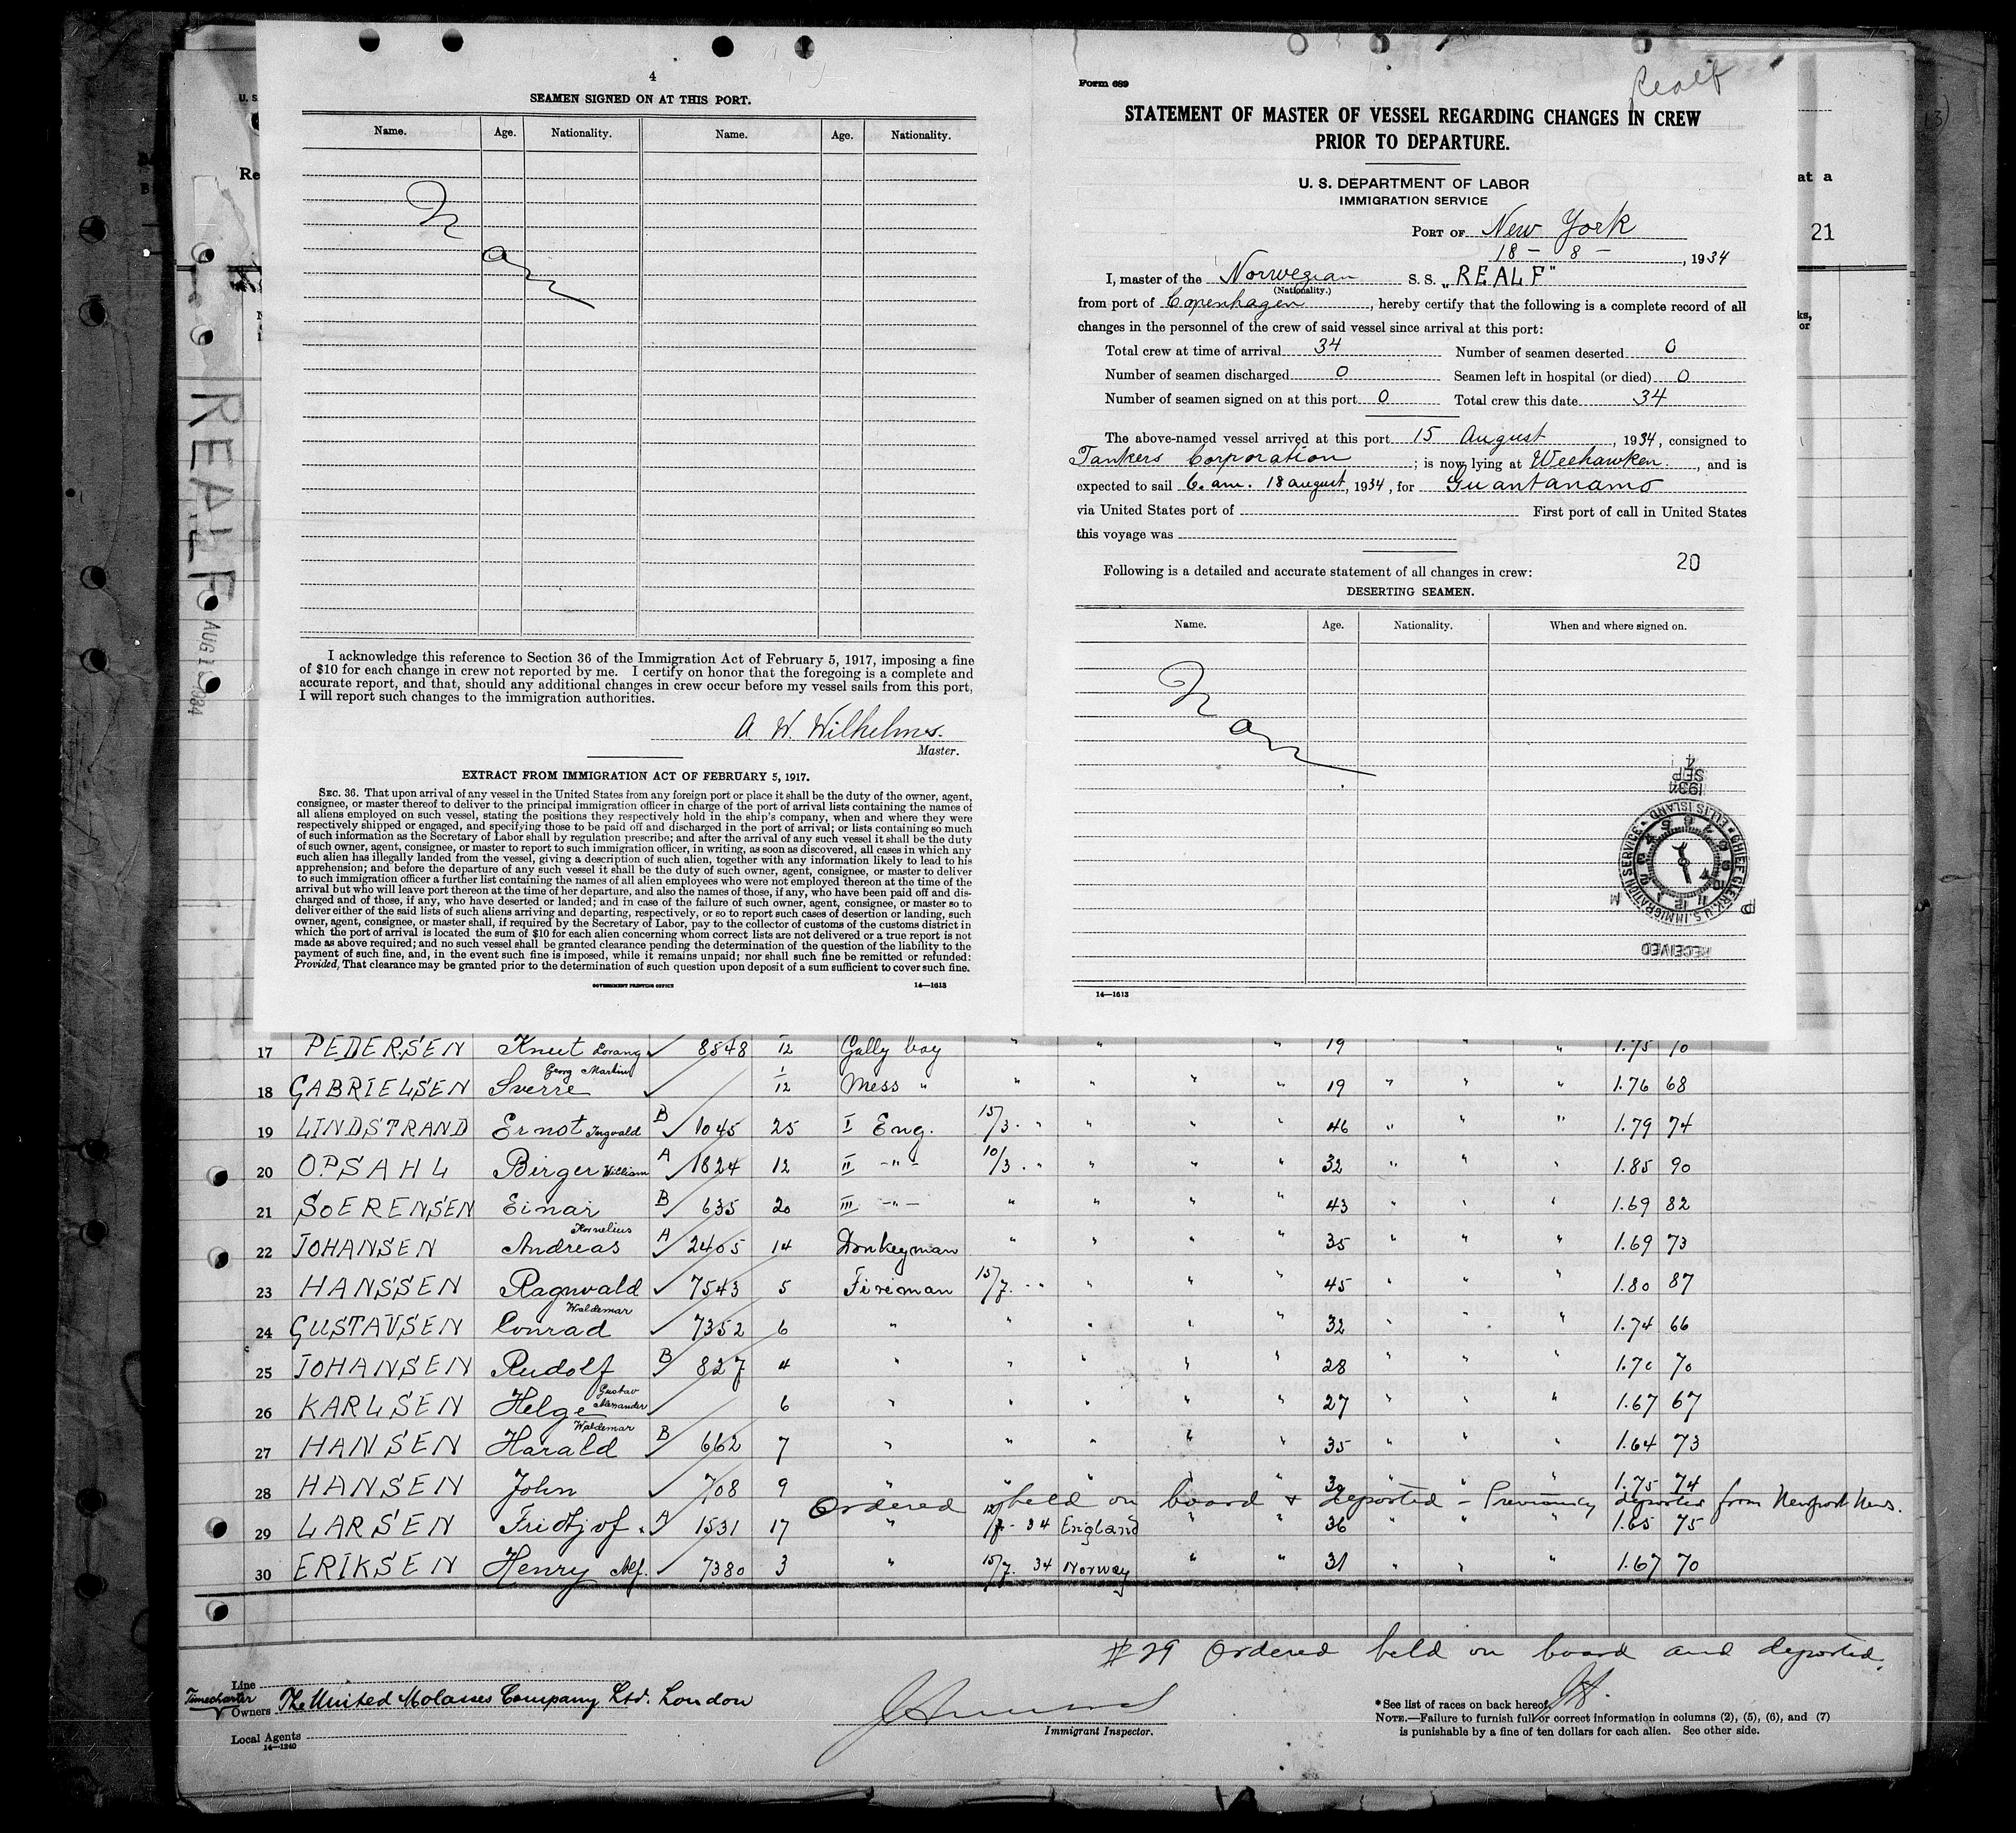 4
SEAMEN SIGNED ON AT THIS PORT.
Name. Age. Nationality. Name. Age. Nationality.
I acknowledge this reference to Section 36 of the Immigration Act of February 5, 1917, imposing a fine
of $10 for each change in crew not reported by me. I certify on honor that the foregoing is a complete and
accurate report, and that, should any additional changes in crew occur before my vessel sails from this port,
I will report such changes to the immigration authorities.
A. W. Wilhelms.
Master.
EXTRACT FROM IMMIGRATION ACT OF FEBRUARY 5, 1917.
SEC. 36. That upon arrival of any vessel in the United States from any foreign port or place it shall be the duty of the owner, agent,
consignee, or master thereof to deliver to the principal immigration officer in charge of the port of arrival lists containing the names of
all aliens employed on such vessel, stating the positions they respectively hold in the ship's company, when and where they were
respectively shipped or engaged, and specifying those to be paid off and discharged in the port of arrival; or lists containing so much
of such information as the Secretary of Labor shall by regulation prescribe; and after the arrival of any such vessel it shall be the duty
of such owner, agent, consignee, or master to report to such immigration officer, in writing, as soon as discovered, all cases in which any
such alien has illegally landed from the vessel, giving a description of such alien, together with any information likely to lead to his
apprehension; and before the departure of any such vessel it shall be the duty of such owner, agent, consignee, or master to deliver
to such immigration officer a further list containing the names of all alien employees who were not employed thereon at the time of the
arrival but who will leave port thereon at the time of her departure, and also the names of those, if any, who have been paid off and dis-
charged and of those, if any, who have deserted or landed; and in case of the failure of such owner, agent, consignee, or master so to
deliver either of the said lists of such aliens arriving and departing, respectively, or so to report such cases of desertion or landing, such
owner, agent, consignee, or master shall, if required by the Secretary of Labor, pay to the collector of customs of the customs district in
which the port of arrival is located the sum of $10 for each alien concerning whom correct lists are not delivered or a true report is not
made as above required; and no such vessel shall be granted clearance pending the determination of the question of the liability to the
payment of such fine, and, in the event such fine is imposed, while it remains unpaid; nor shall such fine be remitted or refunded:
Provided, That clearance may be granted prior to the determination of such question upon deposit of a sum sufficient to cover such fine.
GOVERNMENT PRINTING OFFICE 14—1613
Form 689
Realf
STATEMENT OF MASTER OF VESSEL REGARDING CHANGES IN CREW
PRIOR TO DEPARTURE.
U. S. DEPARTMENT OF LABOR
IMMIGRATION SERVICE
PORT OF New York
18 - 8 - , 1934
I, master of the Norwegian S. S. „REALF"
(Nationality.)
from port of Copenhagen, hereby certify that the following is a complete record of all
changes in the personnel of the crew of said vessel since arrival at this port:
Total crew at time of arrival 34 Number of seamen deserted 0
Number of seamen discharged 0 Seamen left in hospital (or died) 0
Number of seamen signed on at this port 0 Total crew this date 34
The above-named vessel arrived at this port 15 August, 1934, consigned to
Tankers Corporation; is now lying at Weehawken., and is
expected to sail 6. am. 18 august, 1934, for Guantanamo
via United States port of First port of call in United States
this voyage was
20
Following is a detailed and accurate statement of all changes in crew:
DESERTING SEAMEN.
Name. Age. Nationality. When and where signed on.
1934 SEP 4
CHIEF CLERK U.S. IMMIGRATION SERVICE ELLIS ISLAND
RECEIVED
14—1613
at a
21
ks,
or
Re
REALF
AUG 1 1934
17 PEDERSEN Knut Lorang 8548 12 Gally boy " " 19 " " 1.75 70
18 GABRIELSEN Sverre Georg Martin 1/12 Mess " " " " " 19 " " " 1.76 68
19 LINDSTRAND Ernot Ingvald B 1045 25 I Eng. 15/3. " " " " 46 " " " 1.79 74
20 OPSAHL Birger William A 1824 12 II -"- 10/3. " " " " 32 " " " 1.85 90
21 SOERENSEN Einar B 635 20 III -"- " " " " 43 " " " 1.69 82
22 JOHANSEN Andreas Kornelius A 2405 14 Donkeyman " " " " 35 " " " 1.69 73
23 HANSSEN Ragnvald 7543 5 Fireman 15/7. " " " " 45 " " " 1.80 87
24 GUSTAVSEN Conrad Waldemar 7352 6 " " " " " 32 " " " 1.74 66
25 JOHANSEN Rudolf B 827 4 " " " " " 28 " " " 1.70 70
26 KARLSEN Helge Gustav Alexander 6 " " " " " 27 " " " 1.67 67
27 HANSEN Harald Waldemar B 662 7 " " " " " 35 " " " 1.64 73
28 HANSEN John 708 9 " " " " " 30 " " " 1.75 74
Ordered held on board & deported - Previously deported from Newport News.
29 LARSEN Fridtjof A 1531 17 " 12/7 - 34 England " " 36 " " " 1.65 75
30 ERIKSEN Henry Alf. 7380 3 " 15/7. 34 Norway " " 31 " " " 1.67 70
#29 Ordered held on board and deported.
Line
Timecharter Owners The United Molasses Company Ltd. London
Local Agents
14—1240
Immigrant Inspector.
*See list of races on back hereof.
NOTE.—Failure to furnish full or correct information in columns (2), (5), (6), and (7)
is punishable by a fine of ten dollars for each alien. See other side.